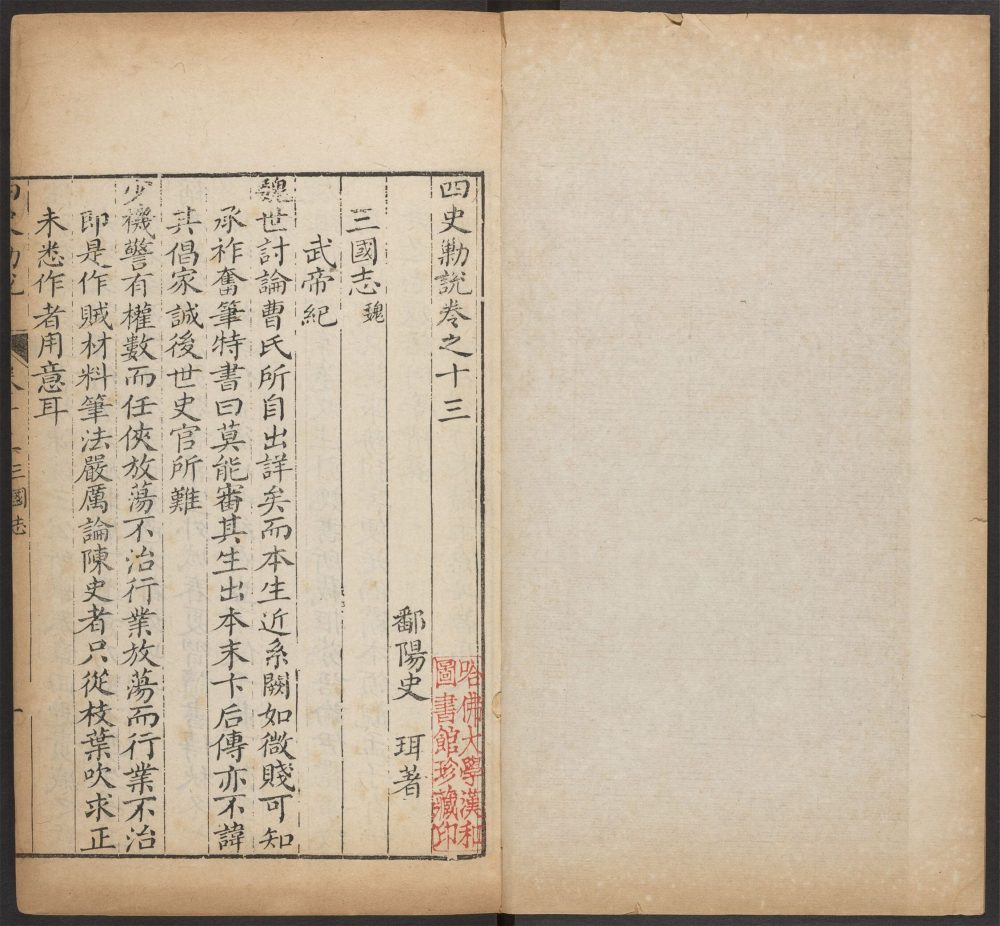 四史勦説卷之十三
哈佛大學漢和
圖書館珍藏印
鄱陽史　珥著
三國志 魏
武帝紀
魏世討論曹氏所自出詳矣而本生近系闕如微賤可知
承祚奮筆特書曰莫能審其生出本末卞后傳亦不諱
其倡家誠後世史官所難
少機警有權數而任俠放蕩不治行業放蕩而行業不治
即是作賊材料筆法嚴厲論陳史者只從枝葉吹求正
未悉作者用意耳
三國志